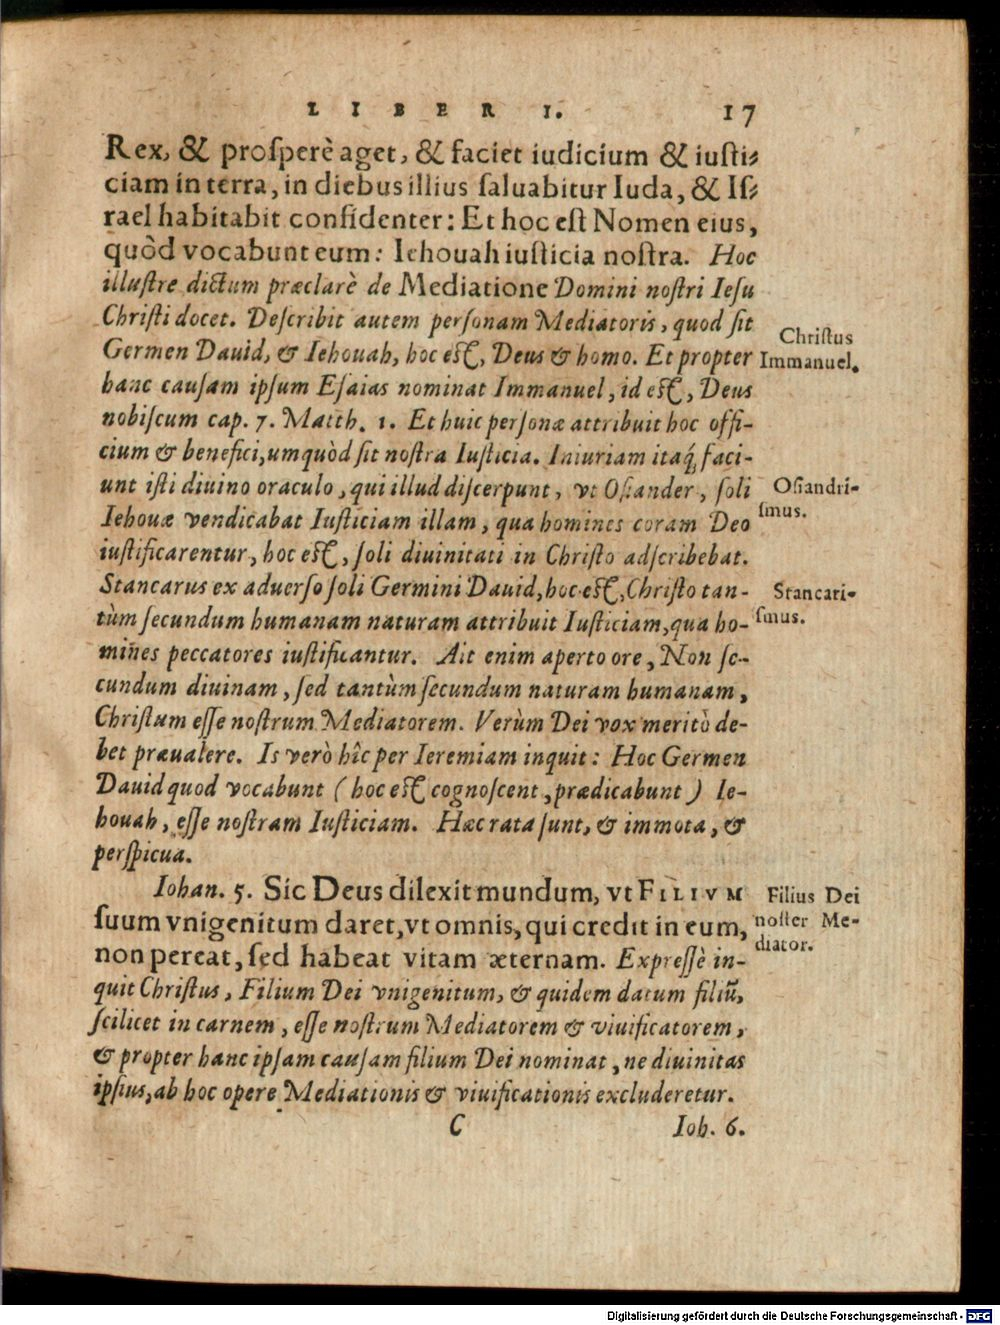 LIBER I. 17
Rex, & proſperè aget, & faciet iudicium & iuſti⸗
ciam in terra, in diebus illius ſaluabitur Iuda, & Iſ⸗
rael habitabit confidenter: Et hoc eſt Nomen eius,
quòd vocabunt eum: Iehouah iuſticia noſtra. Hoc
illuſtre dictum præclarè de Mediatione Domini noſtri Ieſu
Chriſti docet. Deſcribit autem perſonam Mediatoris, quod ſit
Chriſtus
Germen Dauid, & Iehouah, hoc eſt, Deus & homo. Et propter
Immanuel.
hanc cauſam ipſum Eſaias nominat Immanuel, id eſt, Deus
nobiſcum cap. 7. Matth. 1. Et huic perſonæ attribuit hoc offi-
cium & benefici,umquòd ſit noſtra Iuſticia. Iniuriam itaq́; faci-
unt iſti diuino oraculo, qui illud diſcerpunt, vt Oſiander, ſoli
Oſiandri-
Iehouæ vendicabat Iuſticiam illam, qua homines coram Deo
ſmus.
iuſtificarentur, hoc eſt, ſoli diuinitati in Chriſto adſcribebat.
Stancarus ex aduerſo ſoli Germini Dauid, hoc eſt, Chriſto tan-
Stancari-
tùm ſecundum humanam naturam attribuit Iuſticiam, qua ho-
ſmus.
mines peccatores iuſtificantur. Ait enim aperto ore, Non ſe-
cundum diuinam, ſed tantùm ſecundum naturam humanam,
Chriſtum eſſe noſtrum Mediatorem. Verùm Dei vox meritò de-
bet præualere. Is verò hîc per Ieremiam inquit: Hoc Germen
Dauid quod vocabunt (hoc eſt cognoſcent, prædicabunt) Ie-
houah, eſſe noſtram Iuſticiam. Hæc rata ſunt, & immota, &
perſpicua.
Iohan. 5. Sic Deus dilexit mundum, vt FILIVM
Filius Dei
ſuum vnigenitum daret, vt omnis, qui credit in eum,
noſter Me-
non pereat, ſed habeat vitam æternam. Expreſſè in-
diator.
quit Chriſtus, Filium Dei vnigenitum, & quidem datum filiū,
ſcilicet in carnem, eſſe noſtrum Mediatorem & viuificatorem,
& propter hanc ipſam cauſam filium Dei nominat, ne diuinitas
ipſius, ab hoc opere Mediationis & viuificationis excluderetur.
C Ioh. 6.
Digitalisierung gefördert durch die Deutsche Forschungsgemeinschaft - DFG